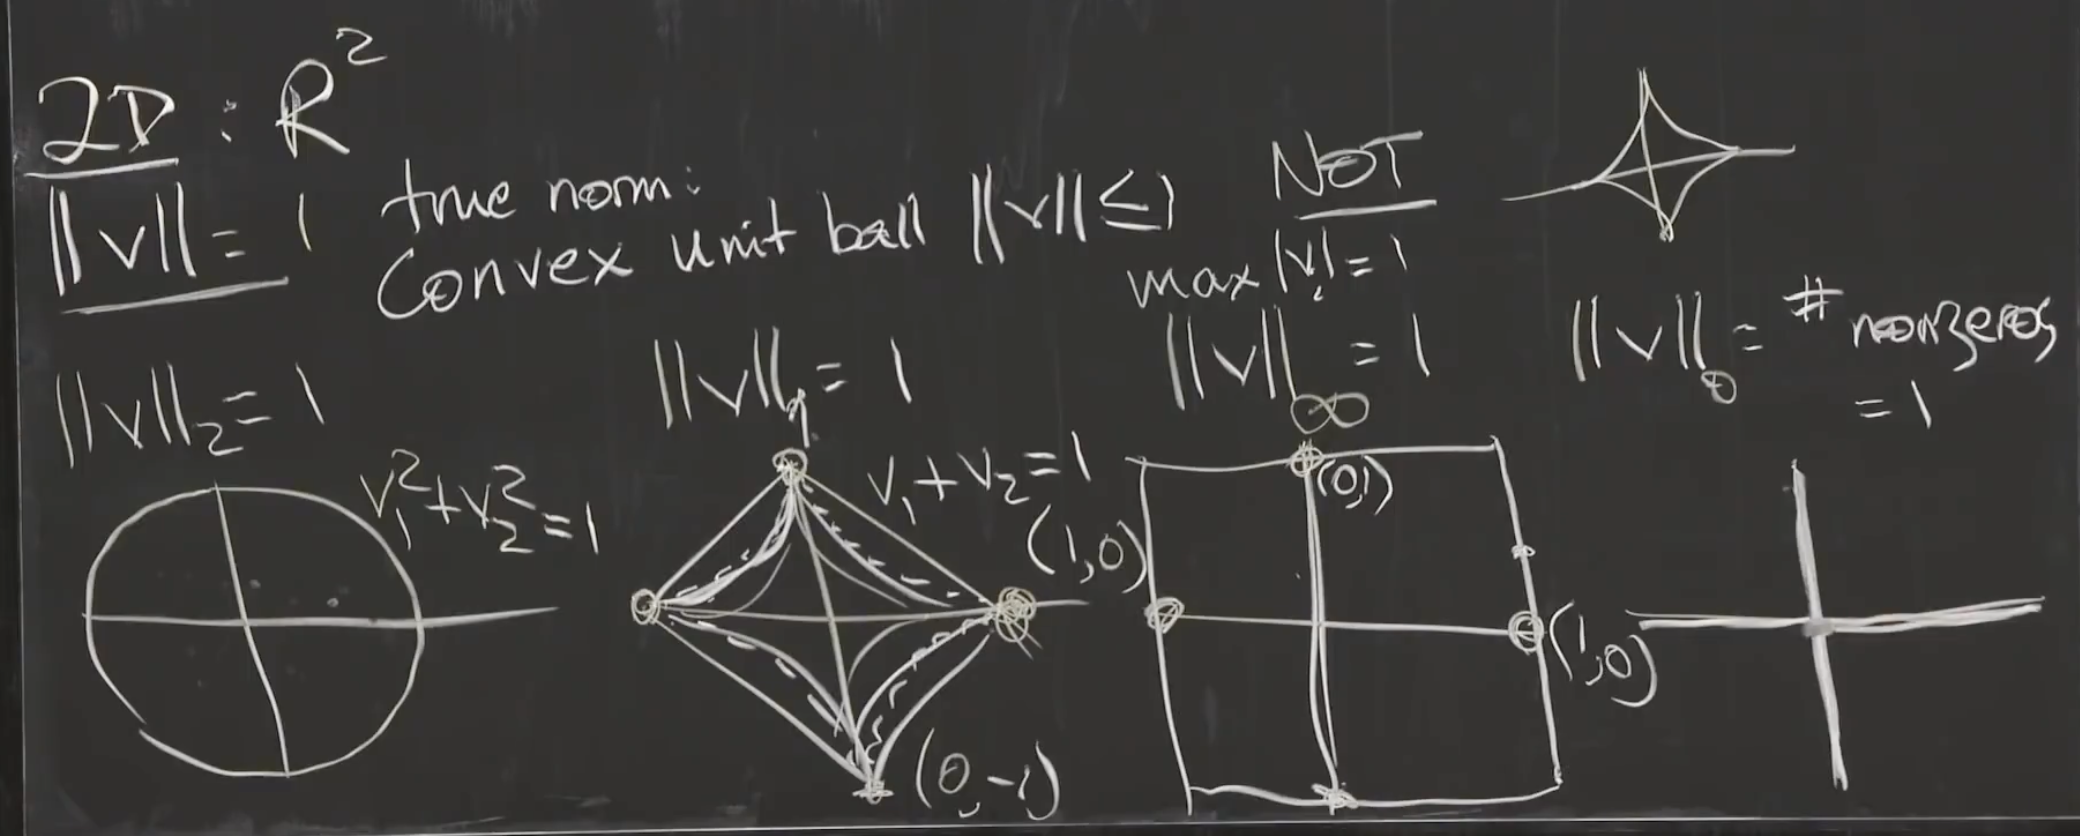 2D : R²
||v|| = 1
true norm:
Convex unit ball ||v|| ≤ 1
NOT
||v||₂ = 1
v₁² + v₂² = 1
||v||₁ = 1
v₁ + v₂ = 1
(1,0)
(0,-1)
max |vᵢ| = 1
||v||∞ = 1
(0,1)
(1,0)
||v||₀ = # nonzeros
= 1